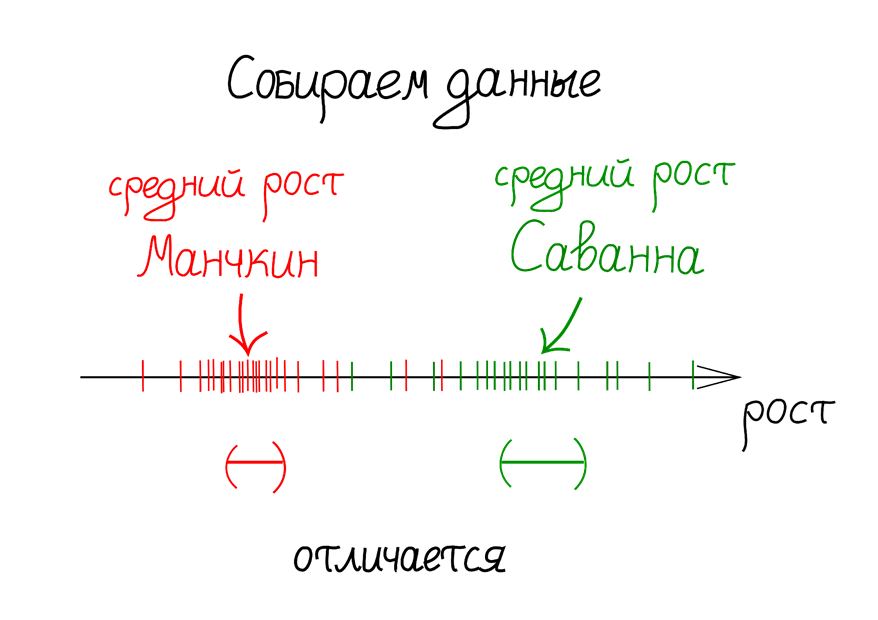 Собираем данные
средний рост
Манчкин
средний рост
Саванна
рост
отличается